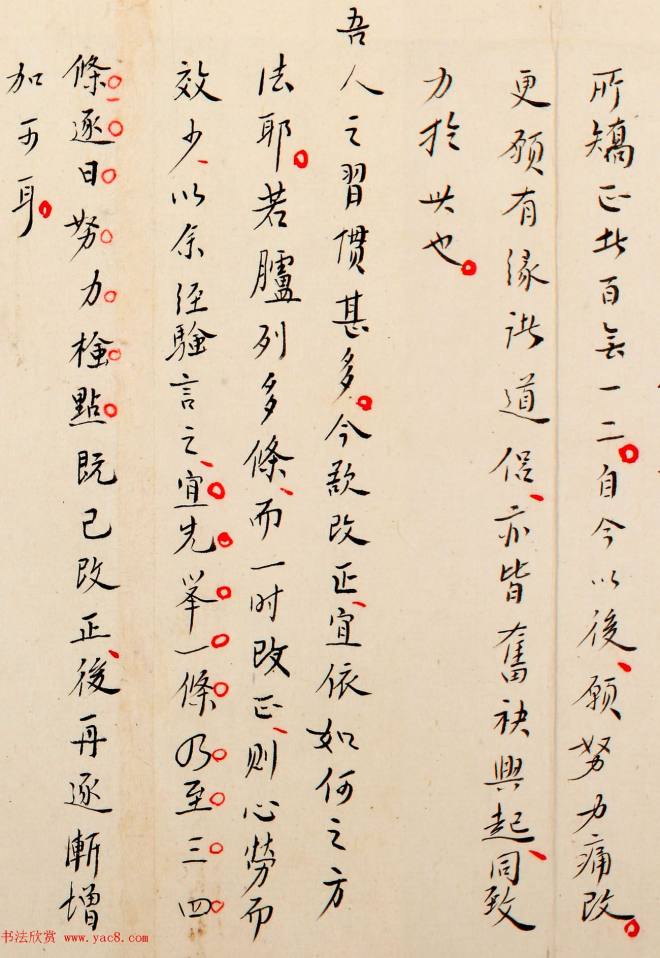 所矯正者百無一二。自今以後、願努力痛改。
更願有緣諸道侶、亦皆奮袂興起、同致
力於此也。
吾人之習慣甚多。今欲改正、宜依如何之方
法耶。若臚列多條、而一时改正、則心勞而
效少、以余经驗言之、宜先举一條乃至三四
條逐日努力檢點既已改正、後再逐漸增
加可耳。
书法欣赏 www.yac8.com